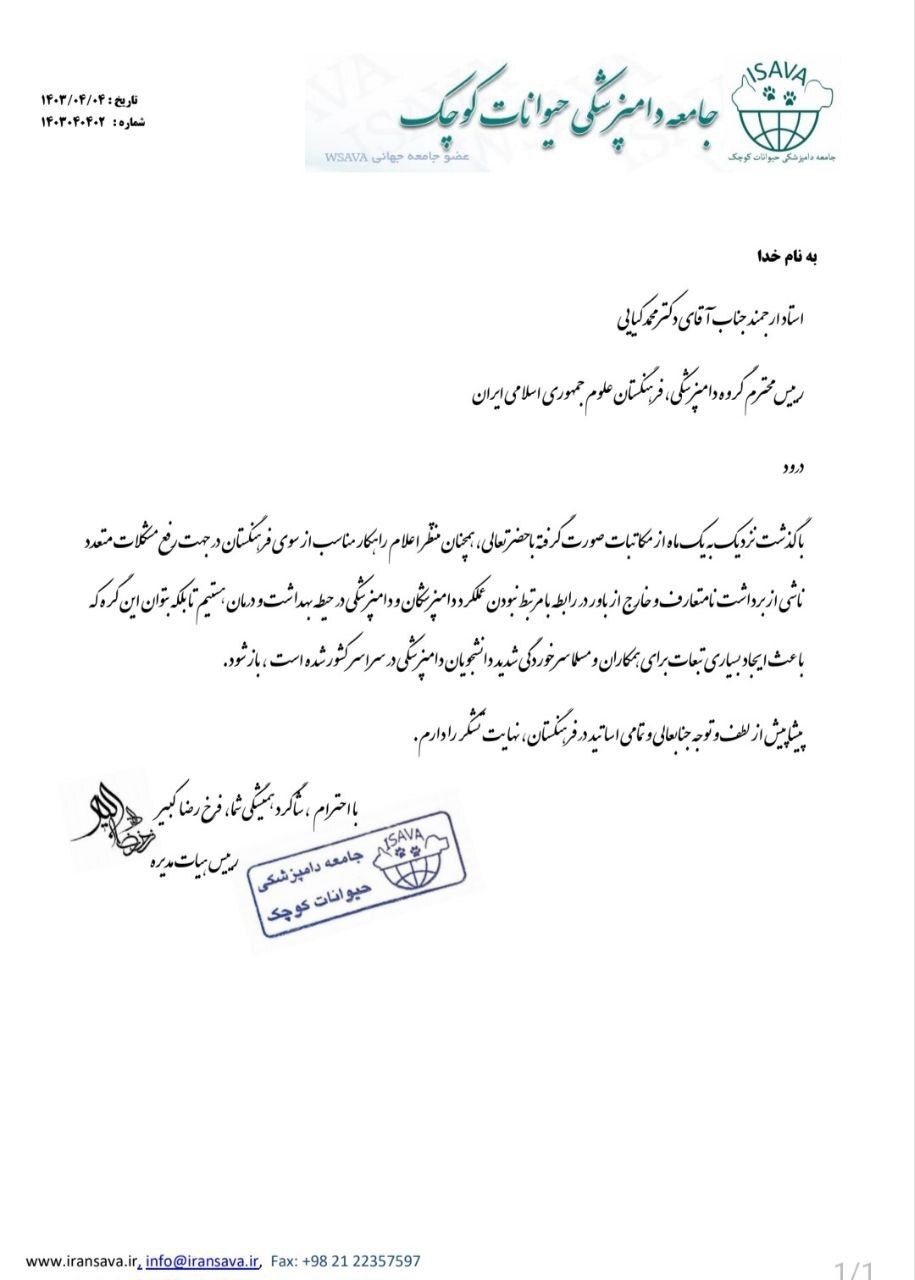 ISAVA
جامعه دامپزشکی حیوانات کوچک
جامعه دامپزشکی حیوانات کوچک
عضو جامعه جهانی WSAVA
تاریخ : ۱۴۰۳/۰۴/۰۴
شماره : ۱۴۰۳۰۴۰۴۰۲
به نام خدا
استاد ارجمند جناب آقای دکتر محمد کیایی
رییس محترم گروه دامپزشکی، فرهنگستان علوم جمهوری اسلامی ایران
درود
با گذشت نزدیک به یک ماه از مکاتبات صورت گرفته با حضرتعالی، همچنان منتظر اعلام راهکار مناسب از سوی فرهنگستان در جهت رفع مشکلات متعدد
ناشی از برداشت نامتعارف و خارج از باور در رابطه با مرتبط نبودن عملکرد دامپزشکان و دامپزشکی در حیطه بهداشت و درمان هستیم تا بلکه بتوان این گره که
باعث ایجاد بسیاری تبعات برای همکاران و مسلما سرخوردگی شدید دانشجویان دامپزشکی در سراسر کشور شده است ، باز شود.
پیشاپیش از لطف و توجه جنابعالی و تمامی اساتید در فرهنگستان، نهایت تشکر را دارم.
با احترام ، شاگرد همیشگی شما، فرخ رضا کبیر
رییس هیات مدیره
ISAVA
جامعه دامپزشکی
حیوانات کوچک
www.iransava.ir, info@iransava.ir, Fax: +98 21 22357597
1/1